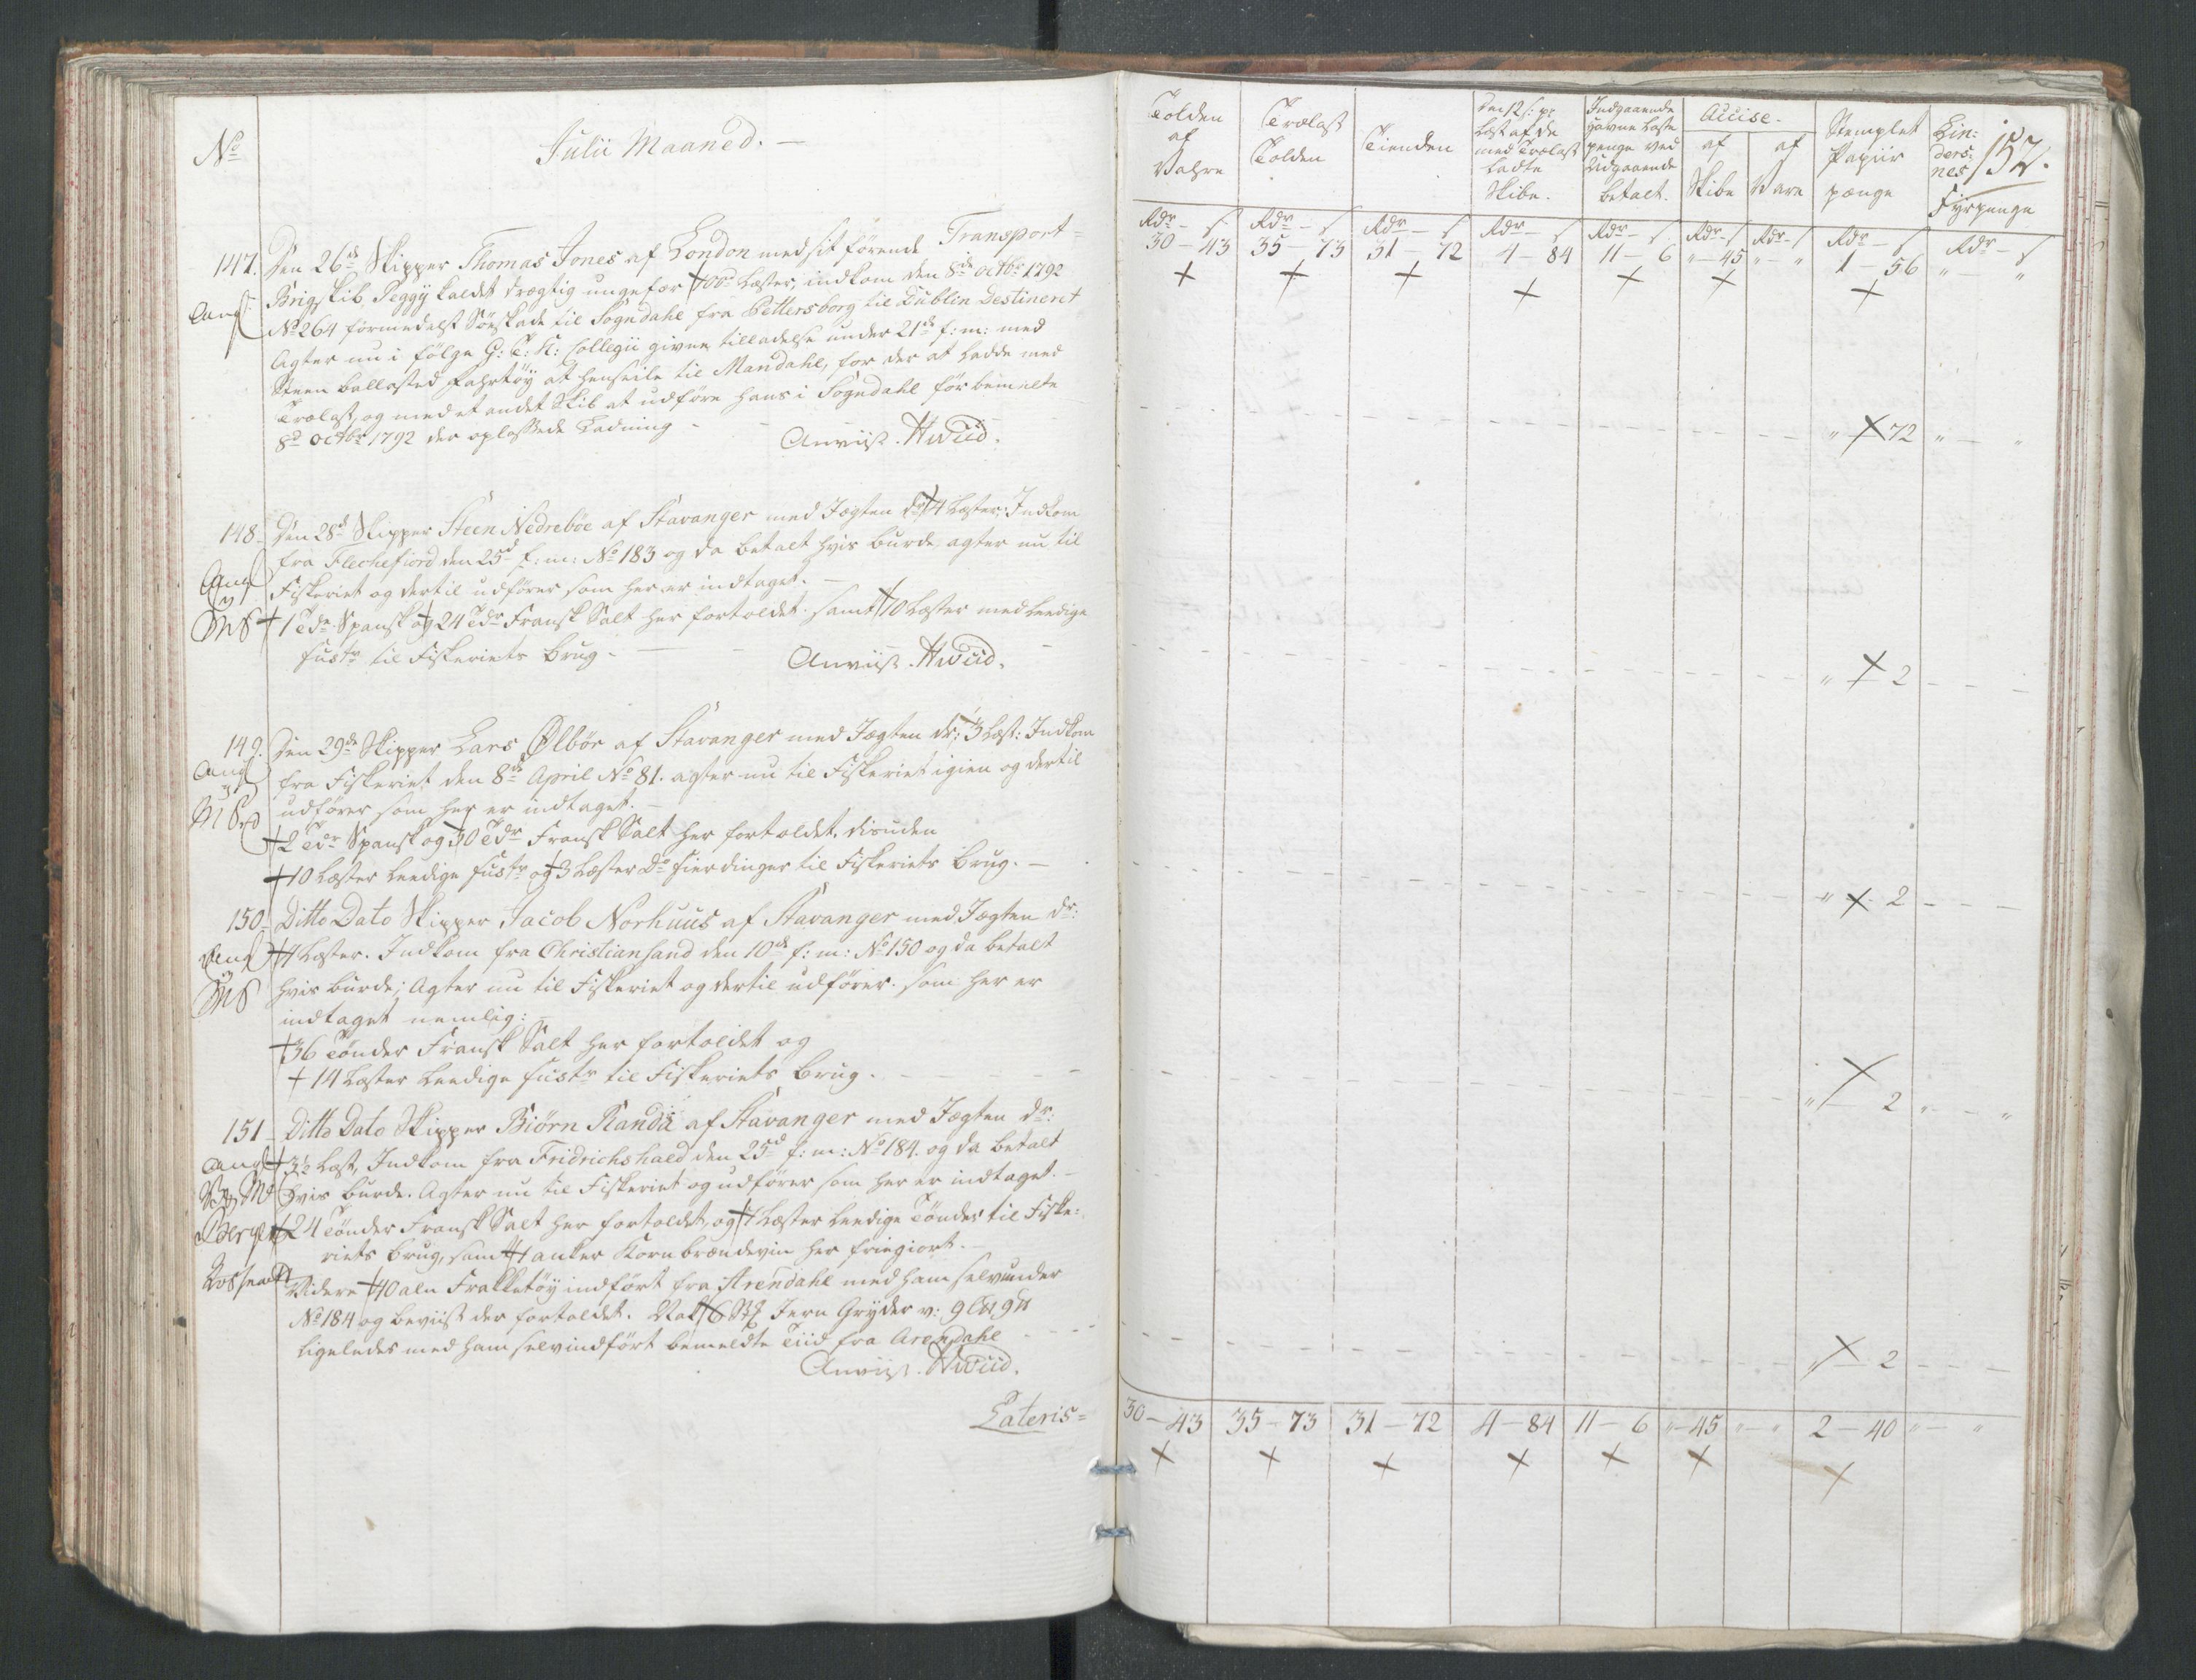 No
Julii Maaned. —
Transport =
147. Den 26de Skipper Thomas Jones af London med sit förende
Brigskib Peggÿ kaldet drægtig ungefær 100de Læster, indkom den 8de octbr 1792
Ang
No 264 formedelst Söeskade til Sogndahl fra Pettersborg til Dublin Destineret
Agter nu i fölge G: T: K: Collegii givne tilladelse under 21de f: m: med
Steen ballasted fahrtöÿ at henseile til Mandahl, for der at ladde med
Trælast, og med et andet Skib at udföre hans i Sogndahl för bemelte
8de octbr 1792 der oplossede Ladning -
Anviist. HWiid.
148. Den 28de Skipper Steen Nedreböe af Stavanger med Jagten dr: 4 Læster, Indkom
fra Flechefiord den 25de f: m: No 183 og da betalt hvis burde, agter nu til
Ang
Fiskeriet og dertil udförer som her er indtaget. —
MS
1 Tde Spansk og 24 Tdr Fransk Salt her fortoldet. samt 10 Læster med leedige
fustr til Fiskeriets brug -
Anviist. HWiid.
149. Den 29de Skipper Lars Ølböe af Stavanger med Jagten dr: 3 Læst: Indkom
Ang
fra Fiskeriet den 8de April No 81. agter nu til Fiskeriet igien og dertil
udförer som her er indtaget. —
2 Tdr Spansk og 30 Tdr Fransk Salt her fortoldet. disuden
10 Læster Leedige fustr og 3 Læster Do fierdinger til Fiskeriets brug. —
150. Ditto Dato Skipper Jacob Norhuus af Stavanger med Jagten dr:
Ang
4 Læster. Indkom fra Christiansand den 10de f: m: No 150 og da betalt
MS
hvis burde; Agter nu til Fiskeriet og dertil udförer. som her er
indtaget nemlig: —
36 Tönder Fransk Salt her fortoldet og
14 Læster Leedige fustr til Fiskeriets brug.
151 Ditto Dato Skipper Biörn Randa af Stavanger med Jagten dr:
Ang
3½ Læst, Indkom fra Fridrichshald den 25de f: m: No 184. og da betalt
hvis burde. Agter nu til Fiskeriet og udförer som her er indtaget. —
Bergen
24 Tönder Fransk Salt her fortoldet, og 7 Læster Leedige Tönder til Fiske:
riets brug, samt 1 anker Korn brændeviin her friegiort. —
Videre 40 alen Frakketöÿ indfört fra Arendahl med ham selv under
No 184 og beviist der fortoldet. 6 Jern Grÿder v:
ligeledes med ham selv indfört bemeldte Tiid fra Arendahl
Anviist. HWiid.
Lateris =
Tolden af Vahre
Trælast Tolden
Tienden
Den 12 s: pr Læst af de med Trælast ladte Skibe.
Indgaaende havne Laste penge ved Udgaaende betalt.
Accise.
af Skibe
af Vare
Stemplet Papiir pænge
Lin: ders: nes Fyrpenge
152.
Rdr — s Rdr — s Rdr — s Rdr — s Rdr — s Rdr — s Rdr — s Rdr — s Rdr — s
30 — 43 35 — 73 31 — 72 4 — 84 11 — 6 " — 45 " — " 1 — 56 " — "
" — 72 " — "
" — 2 — — —
" — 2 — — —
" — 2 " — "
" — 2 — — —
30 — 43 35 — 73 31 — 72 4 — 84 11 — 6 " — 45 " — " 2 — 40 " — "